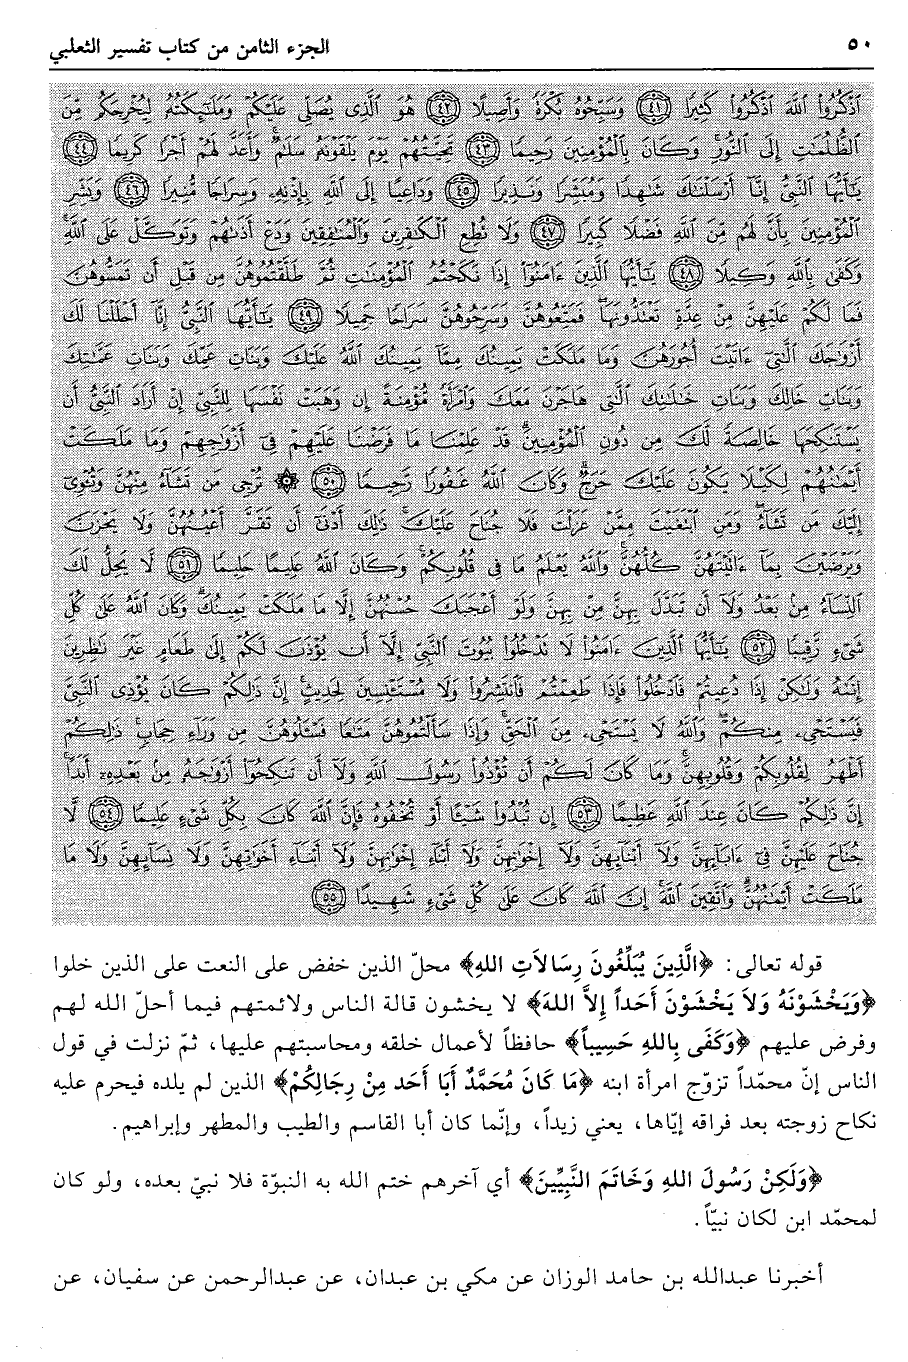 ٥٠ الجزء الثامن من كتاب تفسير الثعلبي
اذْكُرُوا اللَّهَ ذِكْرًا كَثِيرًا ٤١ وَسَبِّحُوهُ بُكْرَةً وَأَصِيلًا ٤٢ هُوَ الَّذِي يُصَلِّي عَلَيْكُمْ وَمَلَٰٓئِكَتُهُ لِيُخْرِجَكُم مِّنَ
الظُّلُمَٰتِ إِلَى النُّورِ وَكَانَ بِالْمُؤْمِنِينَ رَحِيمًا ٤٣ تَحِيَّتُهُمْ يَوْمَ يَلْقَوْنَهُ سَلَٰمٌ وَأَعَدَّ لَهُمْ أَجْرًا كَرِيمًا ٤٤
يَٰٓأَيُّهَا النَّبِيُّ إِنَّا أَرْسَلْنَٰكَ شَٰهِدًا وَمُبَشِّرًا وَنَذِيرًا ٤٥ وَدَاعِيًا إِلَى اللَّهِ بِإِذْنِهِ وَسِرَاجًا مُّنِيرًا ٤٦ وَبَشِّرِ
الْمُؤْمِنِينَ بِأَنَّ لَهُم مِّنَ اللَّهِ فَضْلًا كَبِيرًا ٤٧ وَلَا تُطِعِ الْكَٰفِرِينَ وَالْمُنَٰفِقِينَ وَدَعْ أَذَىٰهُمْ وَتَوَكَّلْ عَلَى اللَّهِ
وَكَفَىٰ بِاللَّهِ وَكِيلًا ٤٨ يَٰٓأَيُّهَا الَّذِينَ ءَامَنُوا إِذَا نَكَحْتُمُ الْمُؤْمِنَٰتِ ثُمَّ طَلَّقْتُمُوهُنَّ مِن قَبْلِ أَن تَمَسُّوهُنَّ
فَمَا لَكُمْ عَلَيْهِنَّ مِنْ عِدَّةٍ تَعْتَدُّونَهَا فَمَتِّعُوهُنَّ وَسَرِّحُوهُنَّ سَرَاحًا جَمِيلًا ٤٩ يَٰٓأَيُّهَا النَّبِيُّ إِنَّا أَحْلَلْنَا لَكَ
أَزْوَٰجَكَ الَّٰتِي ءَاتَيْتَ أُجُورَهُنَّ وَمَا مَلَكَتْ يَمِينُكَ مِمَّا أَفَاءَ اللَّهُ عَلَيْكَ وَبَنَاتِ عَمِّكَ وَبَنَاتِ عَمَّٰتِكَ
وَبَنَاتِ خَالِكَ وَبَنَاتِ خَٰلَٰتِكَ الَّٰتِي هَاجَرْنَ مَعَكَ وَامْرَأَةً مُّؤْمِنَةً إِن وَهَبَتْ نَفْسَهَا لِلنَّبِيِّ إِنْ أَرَادَ النَّبِيُّ أَن
يَسْتَنكِحَهَا خَالِصَةً لَّكَ مِن دُونِ الْمُؤْمِنِينَ قَدْ عَلِمْنَا مَا فَرَضْنَا عَلَيْهِمْ فِي أَزْوَٰجِهِمْ وَمَا مَلَكَتْ
أَيْمَٰنُهُمْ لِكَيْلَا يَكُونَ عَلَيْكَ حَرَجٌ وَكَانَ اللَّهُ غَفُورًا رَّحِيمًا ٥٠ ۞ تُرْجِي مَن تَشَاءُ مِنْهُنَّ وَتُـْٔوِي
إِلَيْكَ مَن تَشَاءُ وَمَنِ ابْتَغَيْتَ مِمَّنْ عَزَلْتَ فَلَا جُنَاحَ عَلَيْكَ ذَٰلِكَ أَدْنَىٰ أَن تَقَرَّ أَعْيُنُهُنَّ وَلَا يَحْزَنَّ
وَيَرْضَيْنَ بِمَا ءَاتَيْتَهُنَّ كُلُّهُنَّ وَاللَّهُ يَعْلَمُ مَا فِي قُلُوبِكُمْ وَكَانَ اللَّهُ عَلِيمًا حَلِيمًا ٥١ لَّا يَحِلُّ لَكَ
النِّسَاءُ مِن بَعْدُ وَلَا أَن تَبَدَّلَ بِهِنَّ مِنْ أَزْوَٰجٍ وَلَوْ أَعْجَبَكَ حُسْنُهُنَّ إِلَّا مَا مَلَكَتْ يَمِينُكَ وَكَانَ اللَّهُ عَلَىٰ كُلِّ
شَيْءٍ رَّقِيبًا ٥٢ يَٰٓأَيُّهَا الَّذِينَ ءَامَنُوا لَا تَدْخُلُوا بُيُوتَ النَّبِيِّ إِلَّا أَن يُؤْذَنَ لَكُمْ إِلَىٰ طَعَامٍ غَيْرَ نَٰظِرِينَ
إِنَىٰهُ وَلَٰكِنْ إِذَا دُعِيتُمْ فَادْخُلُوا فَإِذَا طَعِمْتُمْ فَانتَشِرُوا وَلَا مُسْتَـْٔنِسِينَ لِحَدِيثٍ إِنَّ ذَٰلِكُمْ كَانَ يُؤْذِي النَّبِيَّ
فَيَسْتَحْيِي مِنكُمْ وَاللَّهُ لَا يَسْتَحْيِي مِنَ الْحَقِّ وَإِذَا سَأَلْتُمُوهُنَّ مَتَٰعًا فَسْـَٔلُوهُنَّ مِن وَرَاءِ حِجَابٍ ذَٰلِكُمْ
أَطْهَرُ لِقُلُوبِكُمْ وَقُلُوبِهِنَّ وَمَا كَانَ لَكُمْ أَن تُؤْذُوا رَسُولَ اللَّهِ وَلَا أَن تَنكِحُوا أَزْوَٰجَهُ مِن بَعْدِهِ أَبَدًا
إِنَّ ذَٰلِكُمْ كَانَ عِندَ اللَّهِ عَظِيمًا ٥٣ إِن تُبْدُوا شَيْـًٔا أَوْ تُخْفُوهُ فَإِنَّ اللَّهَ كَانَ بِكُلِّ شَيْءٍ عَلِيمًا ٥٤ لَّا
جُنَاحَ عَلَيْهِنَّ فِي ءَابَائِهِنَّ وَلَا أَبْنَائِهِنَّ وَلَا إِخْوَٰنِهِنَّ وَلَا أَبْنَاءِ إِخْوَٰنِهِنَّ وَلَا أَبْنَاءِ أَخَوَٰتِهِنَّ وَلَا نِسَائِهِنَّ وَلَا مَا
مَلَكَتْ أَيْمَٰنُهُنَّ وَاتَّقِينَ اللَّهَ إِنَّ اللَّهَ كَانَ عَلَىٰ كُلِّ شَيْءٍ شَهِيدًا ٥٥
قوله تعالى: ﴿الَّذِينَ يُبَلِّغُونَ رِسَالاَتِ اللهِ﴾ محلّ الذين خفض على النعت على الذين خلوا
﴿وَيَخْشَوْنَهُ وَلاَ يَخْشَوْنَ أَحَداً إِلاَّ اللهَ﴾ لا يخشون قالة الناس ولائمتهم فيما أحلّ الله لهم
وفرض عليهم ﴿وَكَفَى بِاللهِ حَسِيباً﴾ حافظاً لأعمال خلقه ومحاسبتهم عليها، ثمّ نزلت في قول
الناس إنّ محمّداً تزوّج امرأة ابنه ﴿مَا كَانَ مُحَمَّدٌ أَبَا أَحَد مِنْ رِجَالِكُمْ﴾ الذين لم يلده فيحرم عليه
نكاح زوجته بعد فراقه إيّاها، يعني زيداً، وإنّما كان أبا القاسم والطيب والمطهر وإبراهيم.
﴿وَلَكِنْ رَسُولَ اللهِ وَخَاتَمَ النَّبِيِّينَ﴾ أي آخرهم ختم الله به النبوّة فلا نبيّ بعده، ولو كان
لمحمّد ابن لكان نبيّاً.
أخبرنا عبدالله بن حامد الوزان عن مكي بن عبدان، عن عبدالرحمن عن سفيان، عن